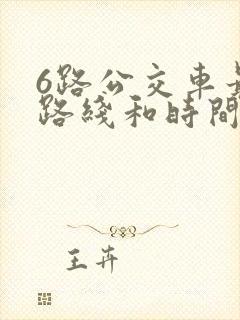 6路公交車
路綫和時間
王卉